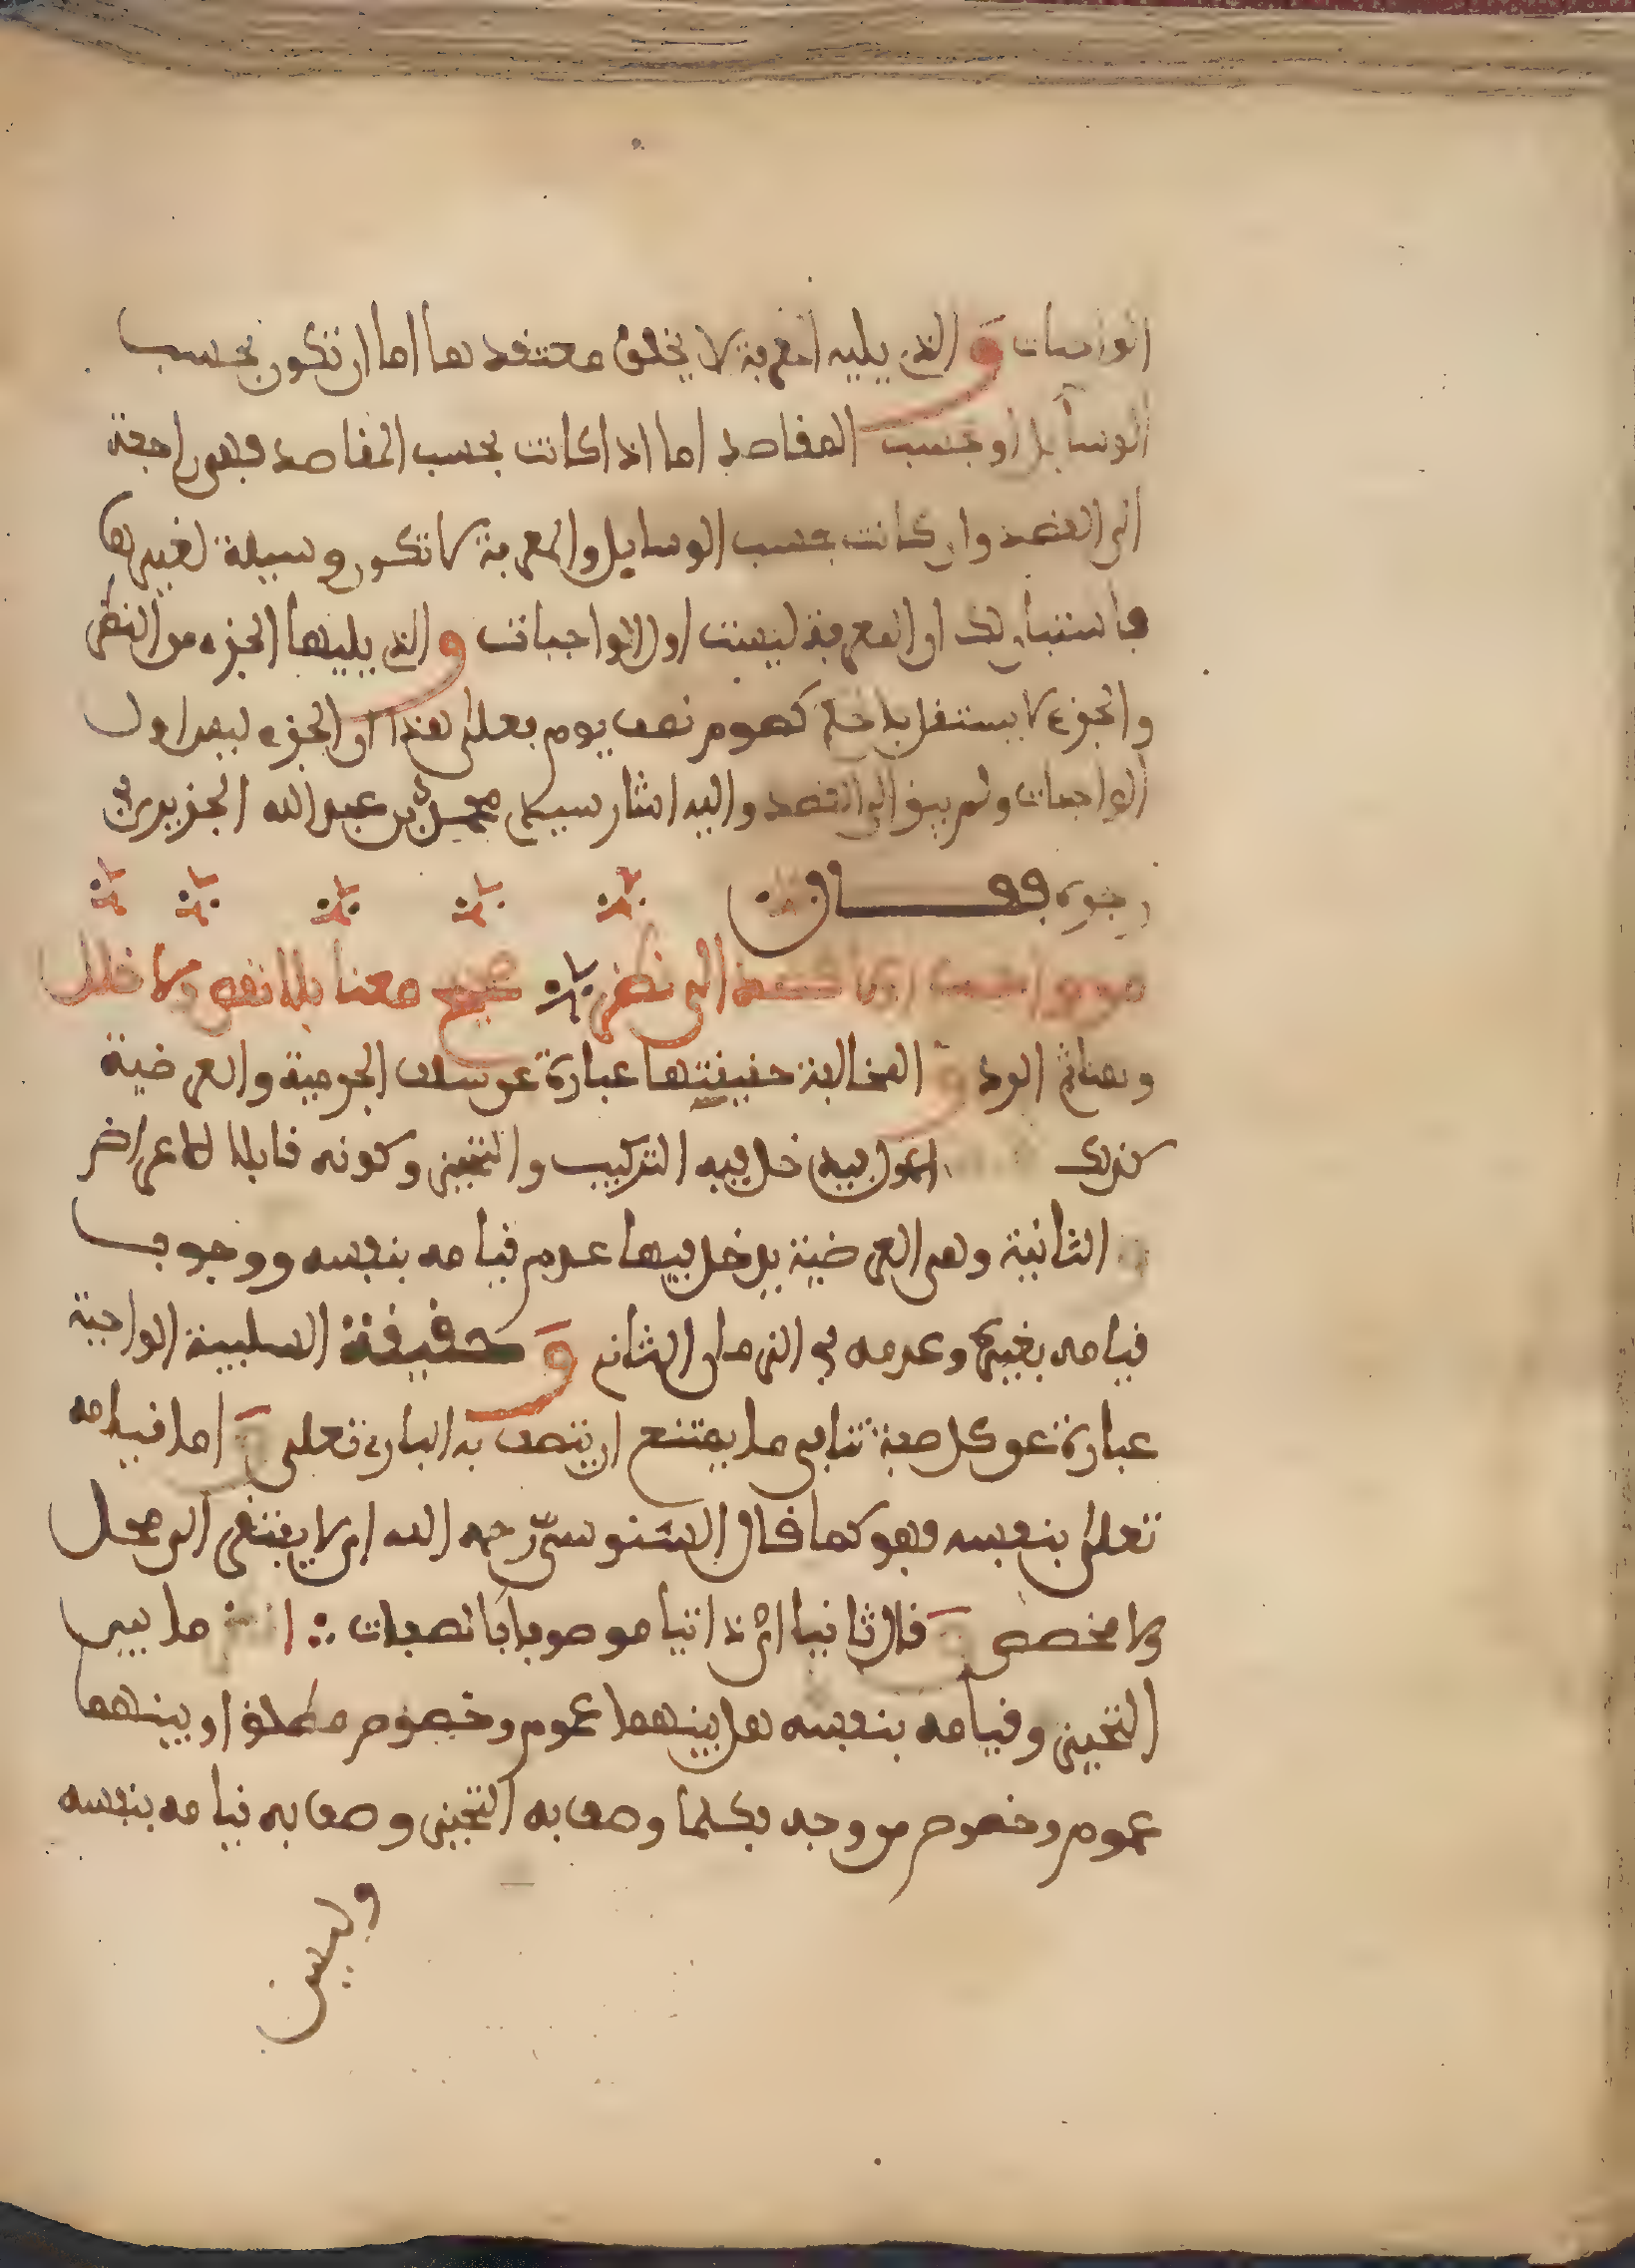 الواجبات و الذي يليه المعرفة لا يخلو معتقدها اما ان تكون بحسب
الوسايل او بحسب المقاصد اما اذا كانت بحسب المقاصد فهي راجعة
الى القصد وان كانت بحسب الوسايل والمعرفة لا تكون وسيلة لغيرها
ان المعرفة ليست اول الواجبات و الذي يليها الجزء من النظر
والجزء لا يستقل كصوم نصف يوم فعلى هذا ان الجزء ليس اول
الواجبات ولم يبق الا القصد واليه اشار سيدي محمد بن عبد الله الجزيري في
رجزه فقال
من واجب ان قصد الى نظر صحيح معنا بلا نقص ولا خلل
الود و المخالفة حقيقتها عبارة عن سلب الجرمية والعرضية
كذلك الاول فيه دخل فيه التركيب والتحيز وكونه قابلا للاعراض
و الثانية وهي العرضية يدخل فيها عدم قيامه بنفسه ووجوب
قيامه بغيره وعدمه في الزمان الثاني و حقيقة السلبية الواجبة
عبارة عن كل صفة تنافي ما يمتنع ان يتصف به الباري تعلى و اما قيامه
تعلى بنفسه فهو كما قال السنوسي رحمه الله اي لا يفتقر الى محل
ولا مخصص و قال ثانيا اي ذاتيا موصوفا بالصفات ما بين
التحيز وقيامه بنفسه هل بينهما عموم وخصوص مطلق او بينهما
عموم وخصوص من وجه فكلما وصف به التحيز وصف به قيامه بنفسه
وليس